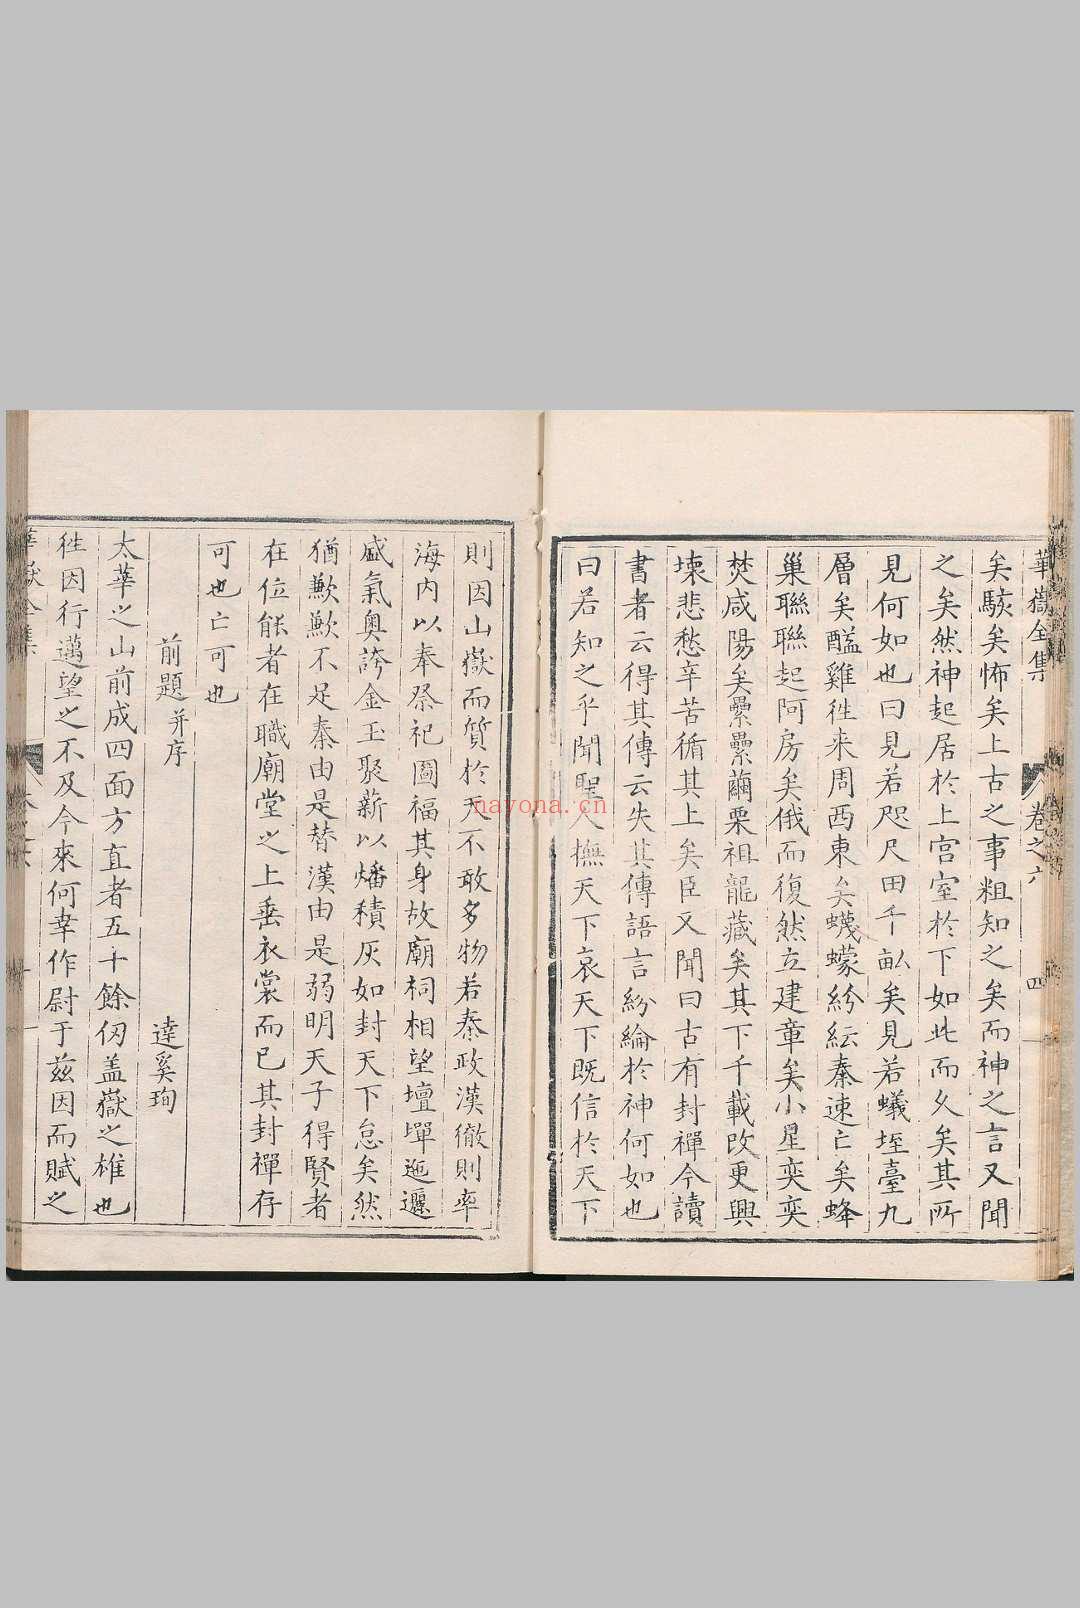 華嶽全集 卷之六 四
矣駭矣怖矣上古之事粗知之矣而神之言又聞
之矣然神起居於上宫室於下如此而久矣其所
見何如也曰見若咫尺田千畝矣見若蟻垤臺九
層矣醯雞徃来周西東矣蠛蠓紛紜秦速亡矣蜂
巢聯聯起阿房矣俄而復然立建章矣小星奕奕
焚咸陽矣纍纍繭栗祖龍藏矣其下千載改更興
壊悲愁辛苦循其上矣臣又聞曰古有封禪今讀
書者云得其傳云失其傳語言紛綸於神何如也
曰若知之乎聞聖人撫天下哀天下既信於天下
則因山嶽而質於天不敢多物若秦政漢徹則率
海内以奉祭祀圖福其身故廟祠相望壇墠迤邐
盛氣奥誇金玉聚薪以燔積灰如封天下怠矣然
猶歉歉不足秦由是替漢由是弱明天子得賢者
在位能者在職廟堂之上垂衣裳而已其封禪存
可也亡可也
前題并序
達奚珣
太華之山前成四面方直者五十餘仭盖嶽之雄也
徃因行邁望之不及今來何幸作尉于兹因而賦之
nayona.cn